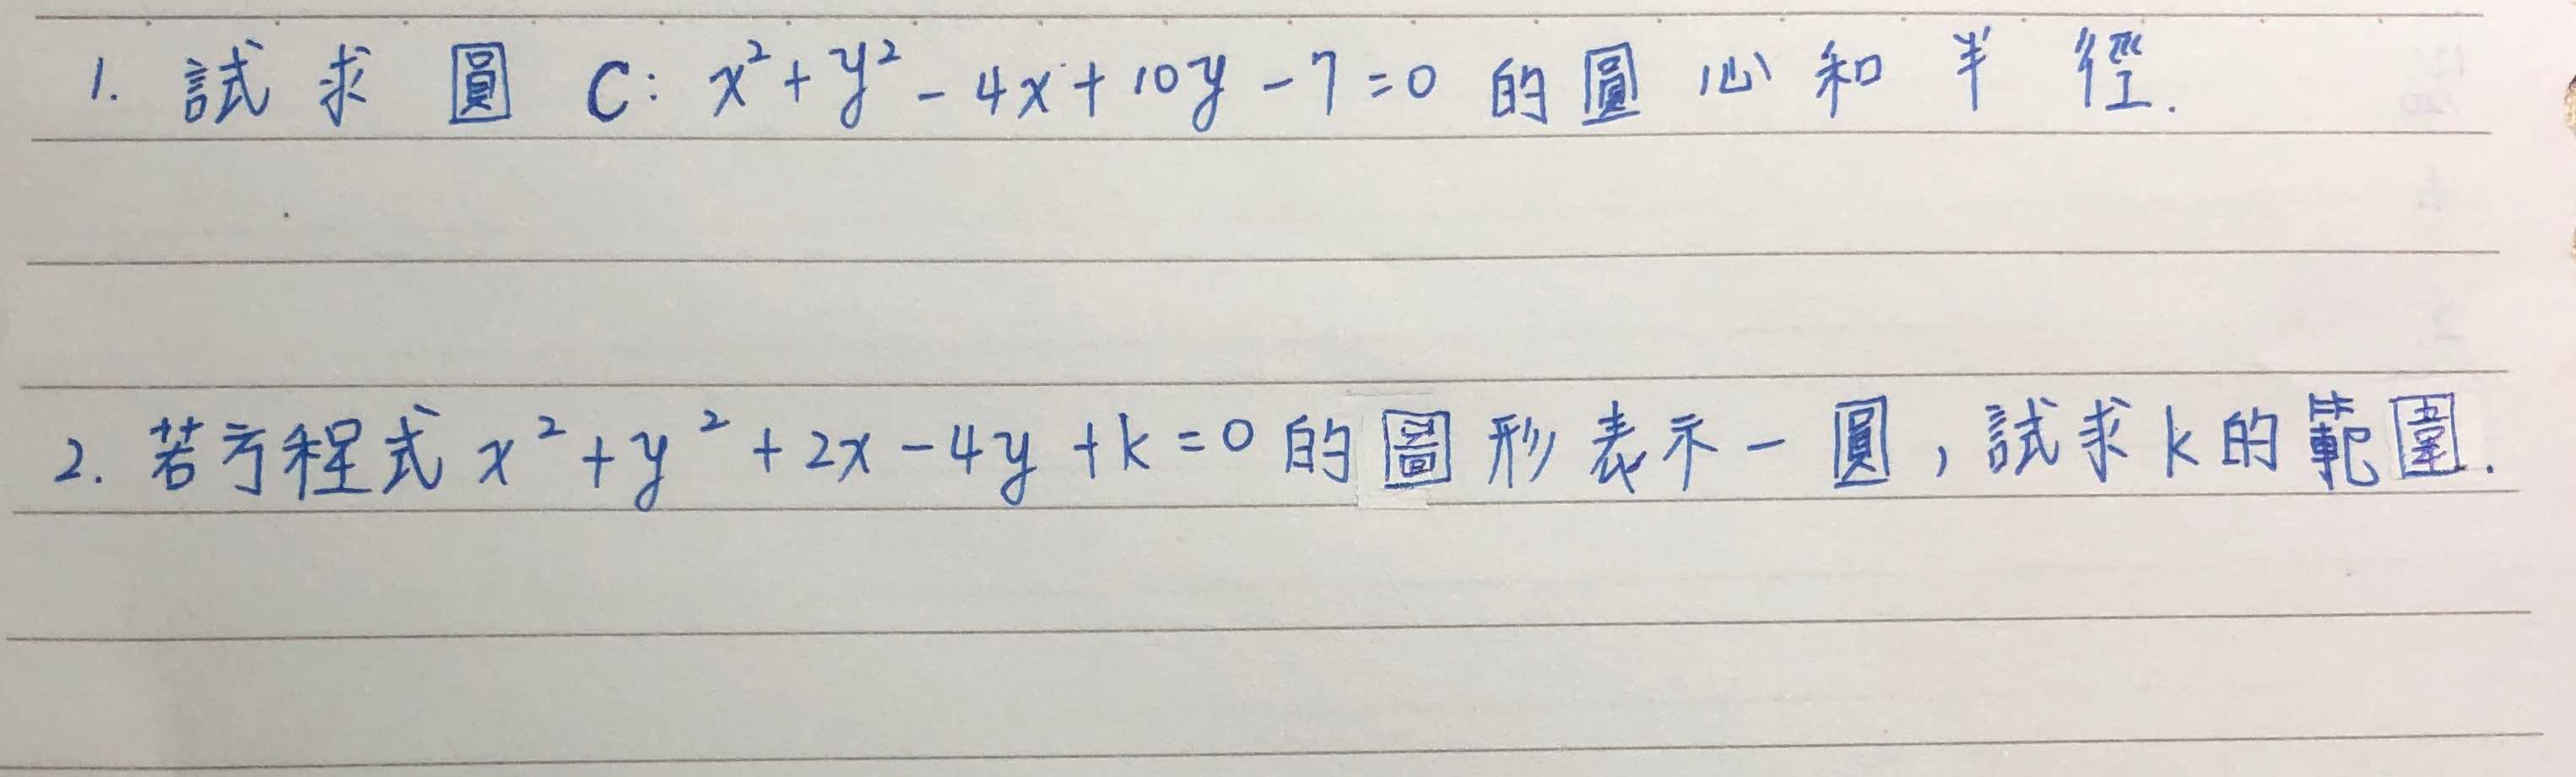 1. 試求圓 C: x²+y²-4x+10y-7=0 的圓心和半徑.
2. 若方程式 x²+y²+2x-4y+k=0 的圖形表示一圓,試求k的範圍.